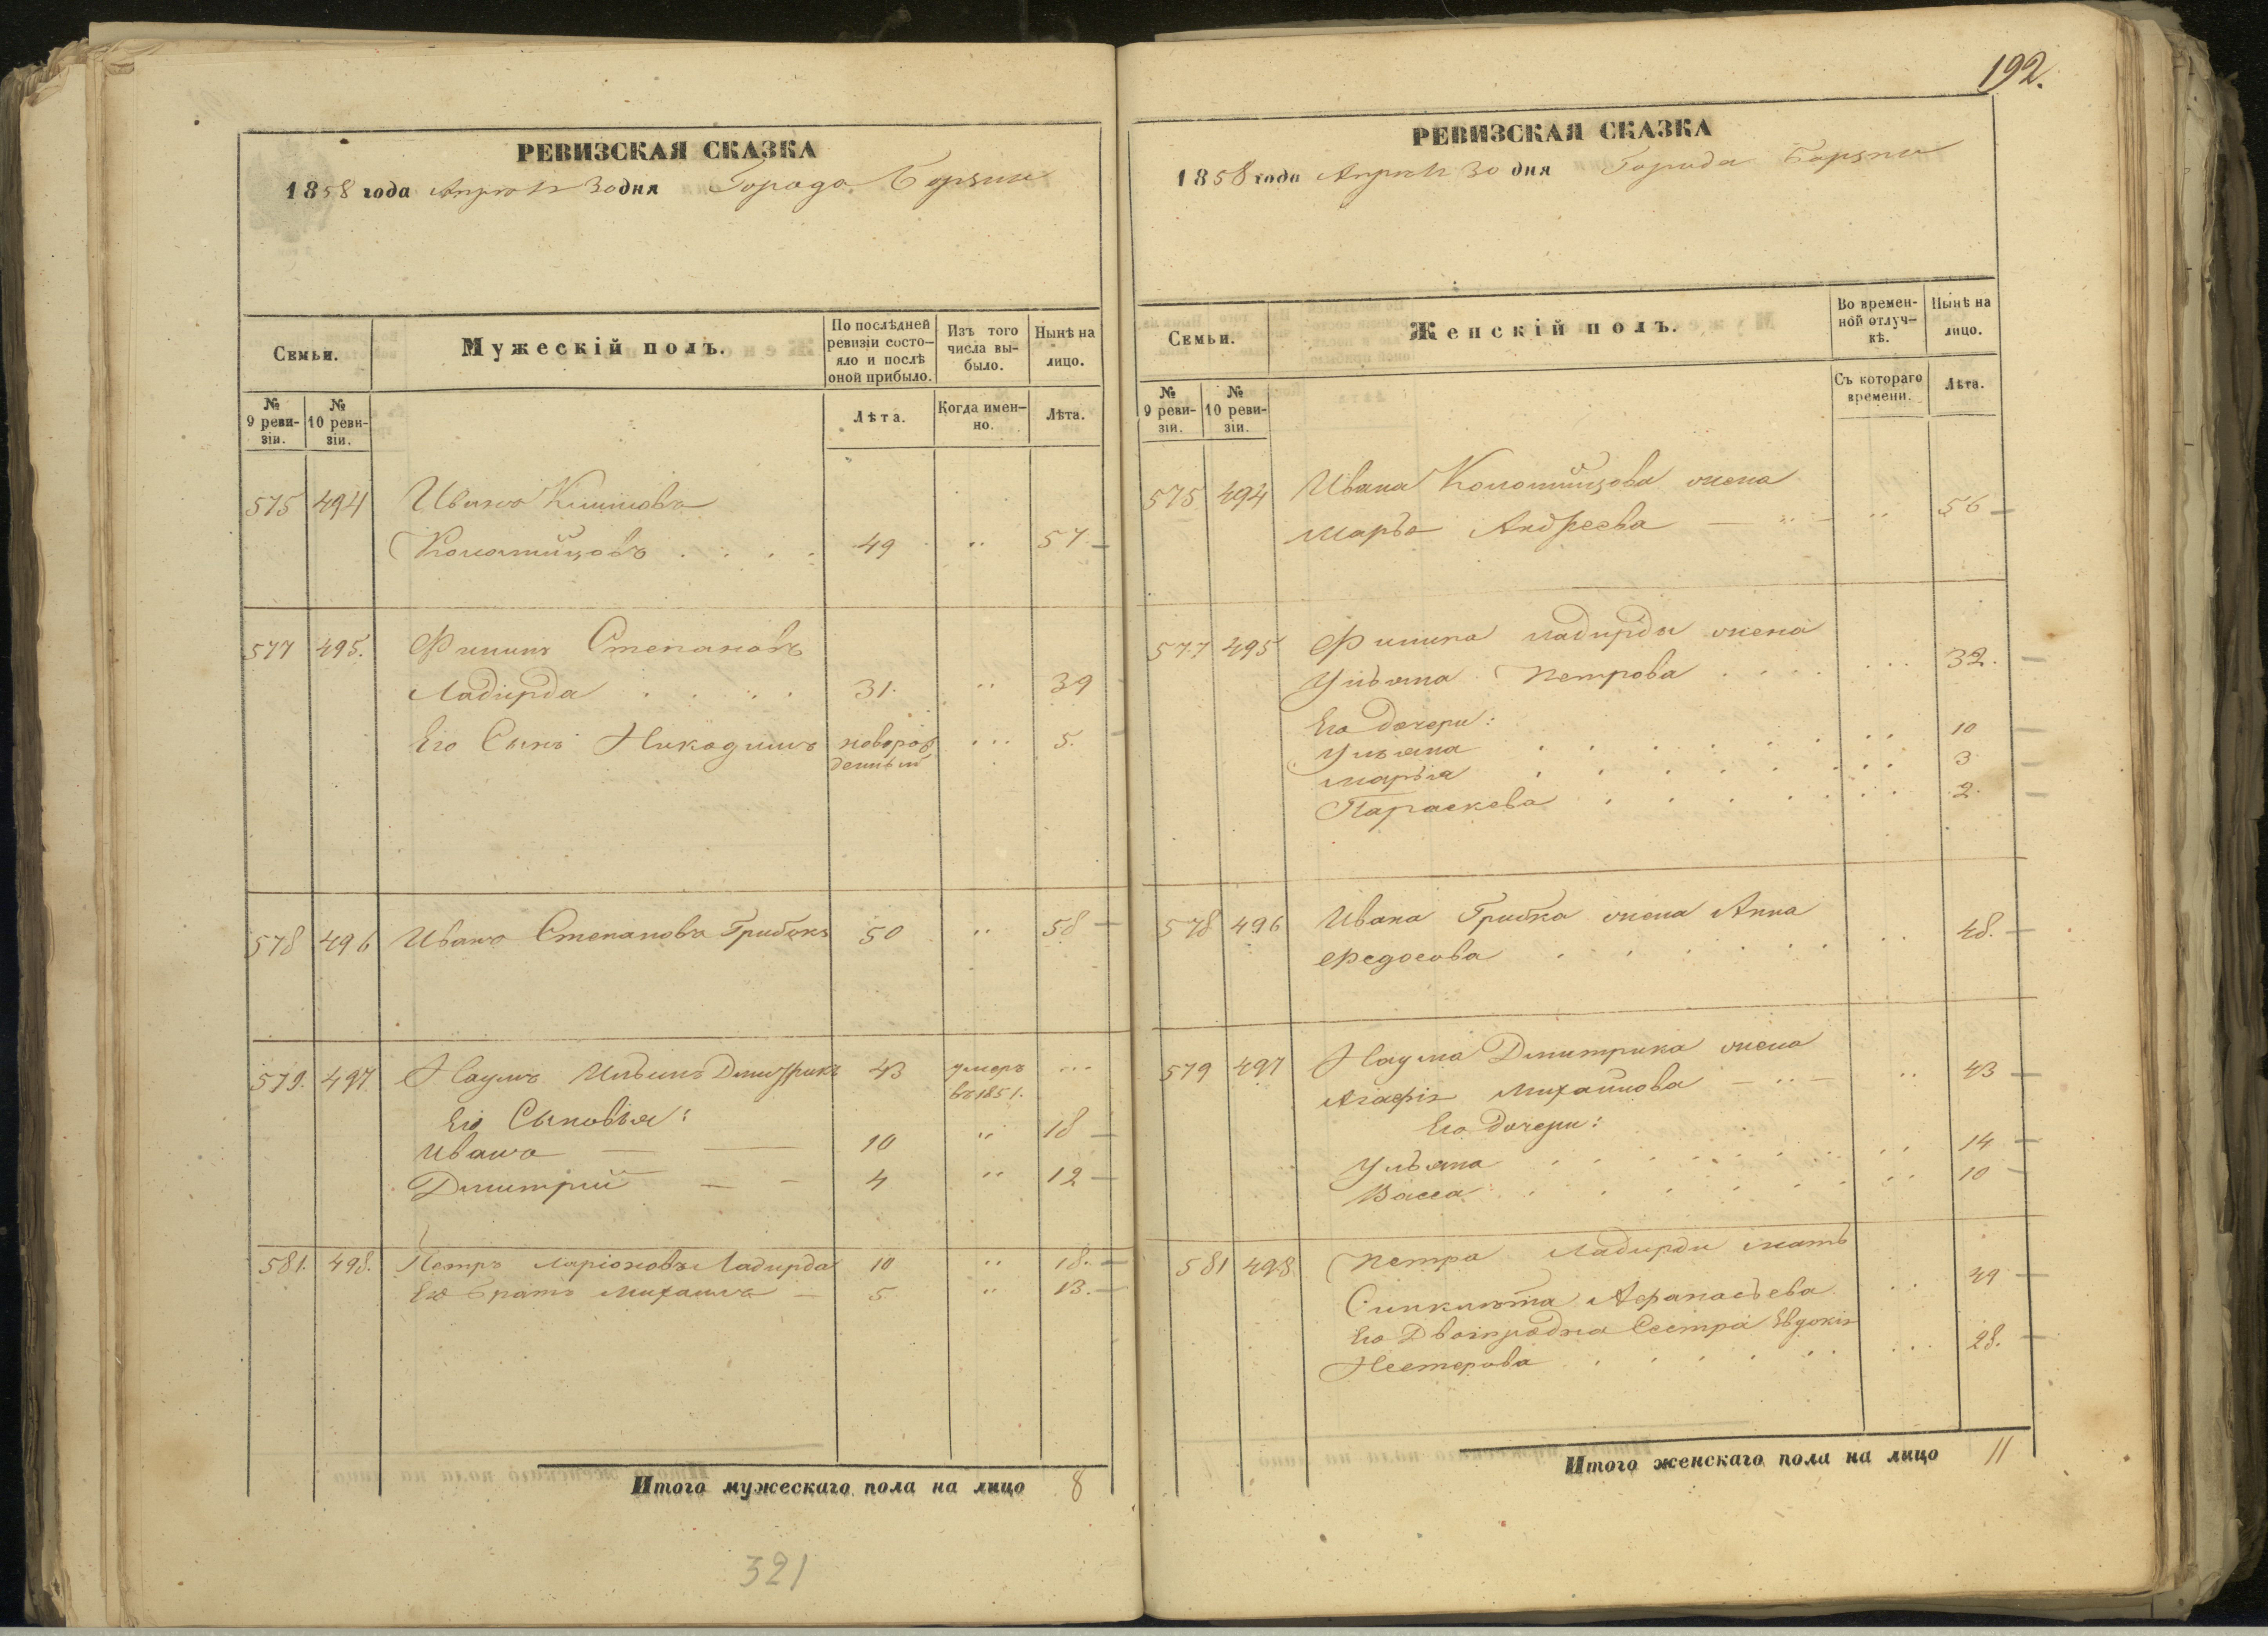 РЕВИЗСКАЯ СКАЗКА
1858 года Апреля 30 дня Города Борзны
Семьи.
Мужескій полъ.
По послѣдней
ревизіи состо-
яло и послѣ
оной прибыло.
Изъ того
числа вы-
было.
Нынѣ на
лицо.
№
9 реви-
зіи.
№
10 реви-
зіи.
Лѣта.
Когда имен-
но.
Лѣта.
575 494 Иванъ
Коломийцовъ . . . . 49 " 57
577 495. Филипъ Степановъ
Ладирда . . . . . 31. " 39
Его Сынъ Никодимъ новорож ... 5.
денный
578 496 Иванъ Степановъ Грибокъ 50 " 58
579. 497 Наумъ Ильинъ Дмитрикъ 43 умеръ ...
въ 1851.
Его Сыновья:
Иванъ 10 " 18
Дмитрій 4 " 12
581. 498. Петръ Ларіоновъ Ладирда 10 " 18.
Его братъ Михаилъ 5 " 13.
Итого мужескаго пола на лицо 8
321
192.
РЕВИЗСКАЯ СКАЗКА
1858 года Апреля 30 дня Города Борзны
Семьи.
Женскій полъ.
Во времен-
ной отлуч-
кѣ.
Нынѣ на
лицо.
№
9 реви-
зіи.
№
10 реви-
зіи.
Съ котораго
времени.
Лѣта.
575 494 Ивана Коломийцова жена
Марья Андреева " 56
577 495 Филипа Ладирды жена
Ульяна Петрова . . . . ... 32.
Его дочери:
Ульяна 10
Марья 3
Параскева 2.
578 496 Ивана Грибка жена Анна
Федосова 48.
579 497 Наума Дмитрика жена
Агафія Михайлова " 43
Его дочери:
Ульяна 14
Васса 10
581 498. Петра Ладирди мать
Синклита Афанасьева 49
Его Двоюродна Сестра Евдокія
Нестерова 28.
Итого женскаго пола на лицо 11